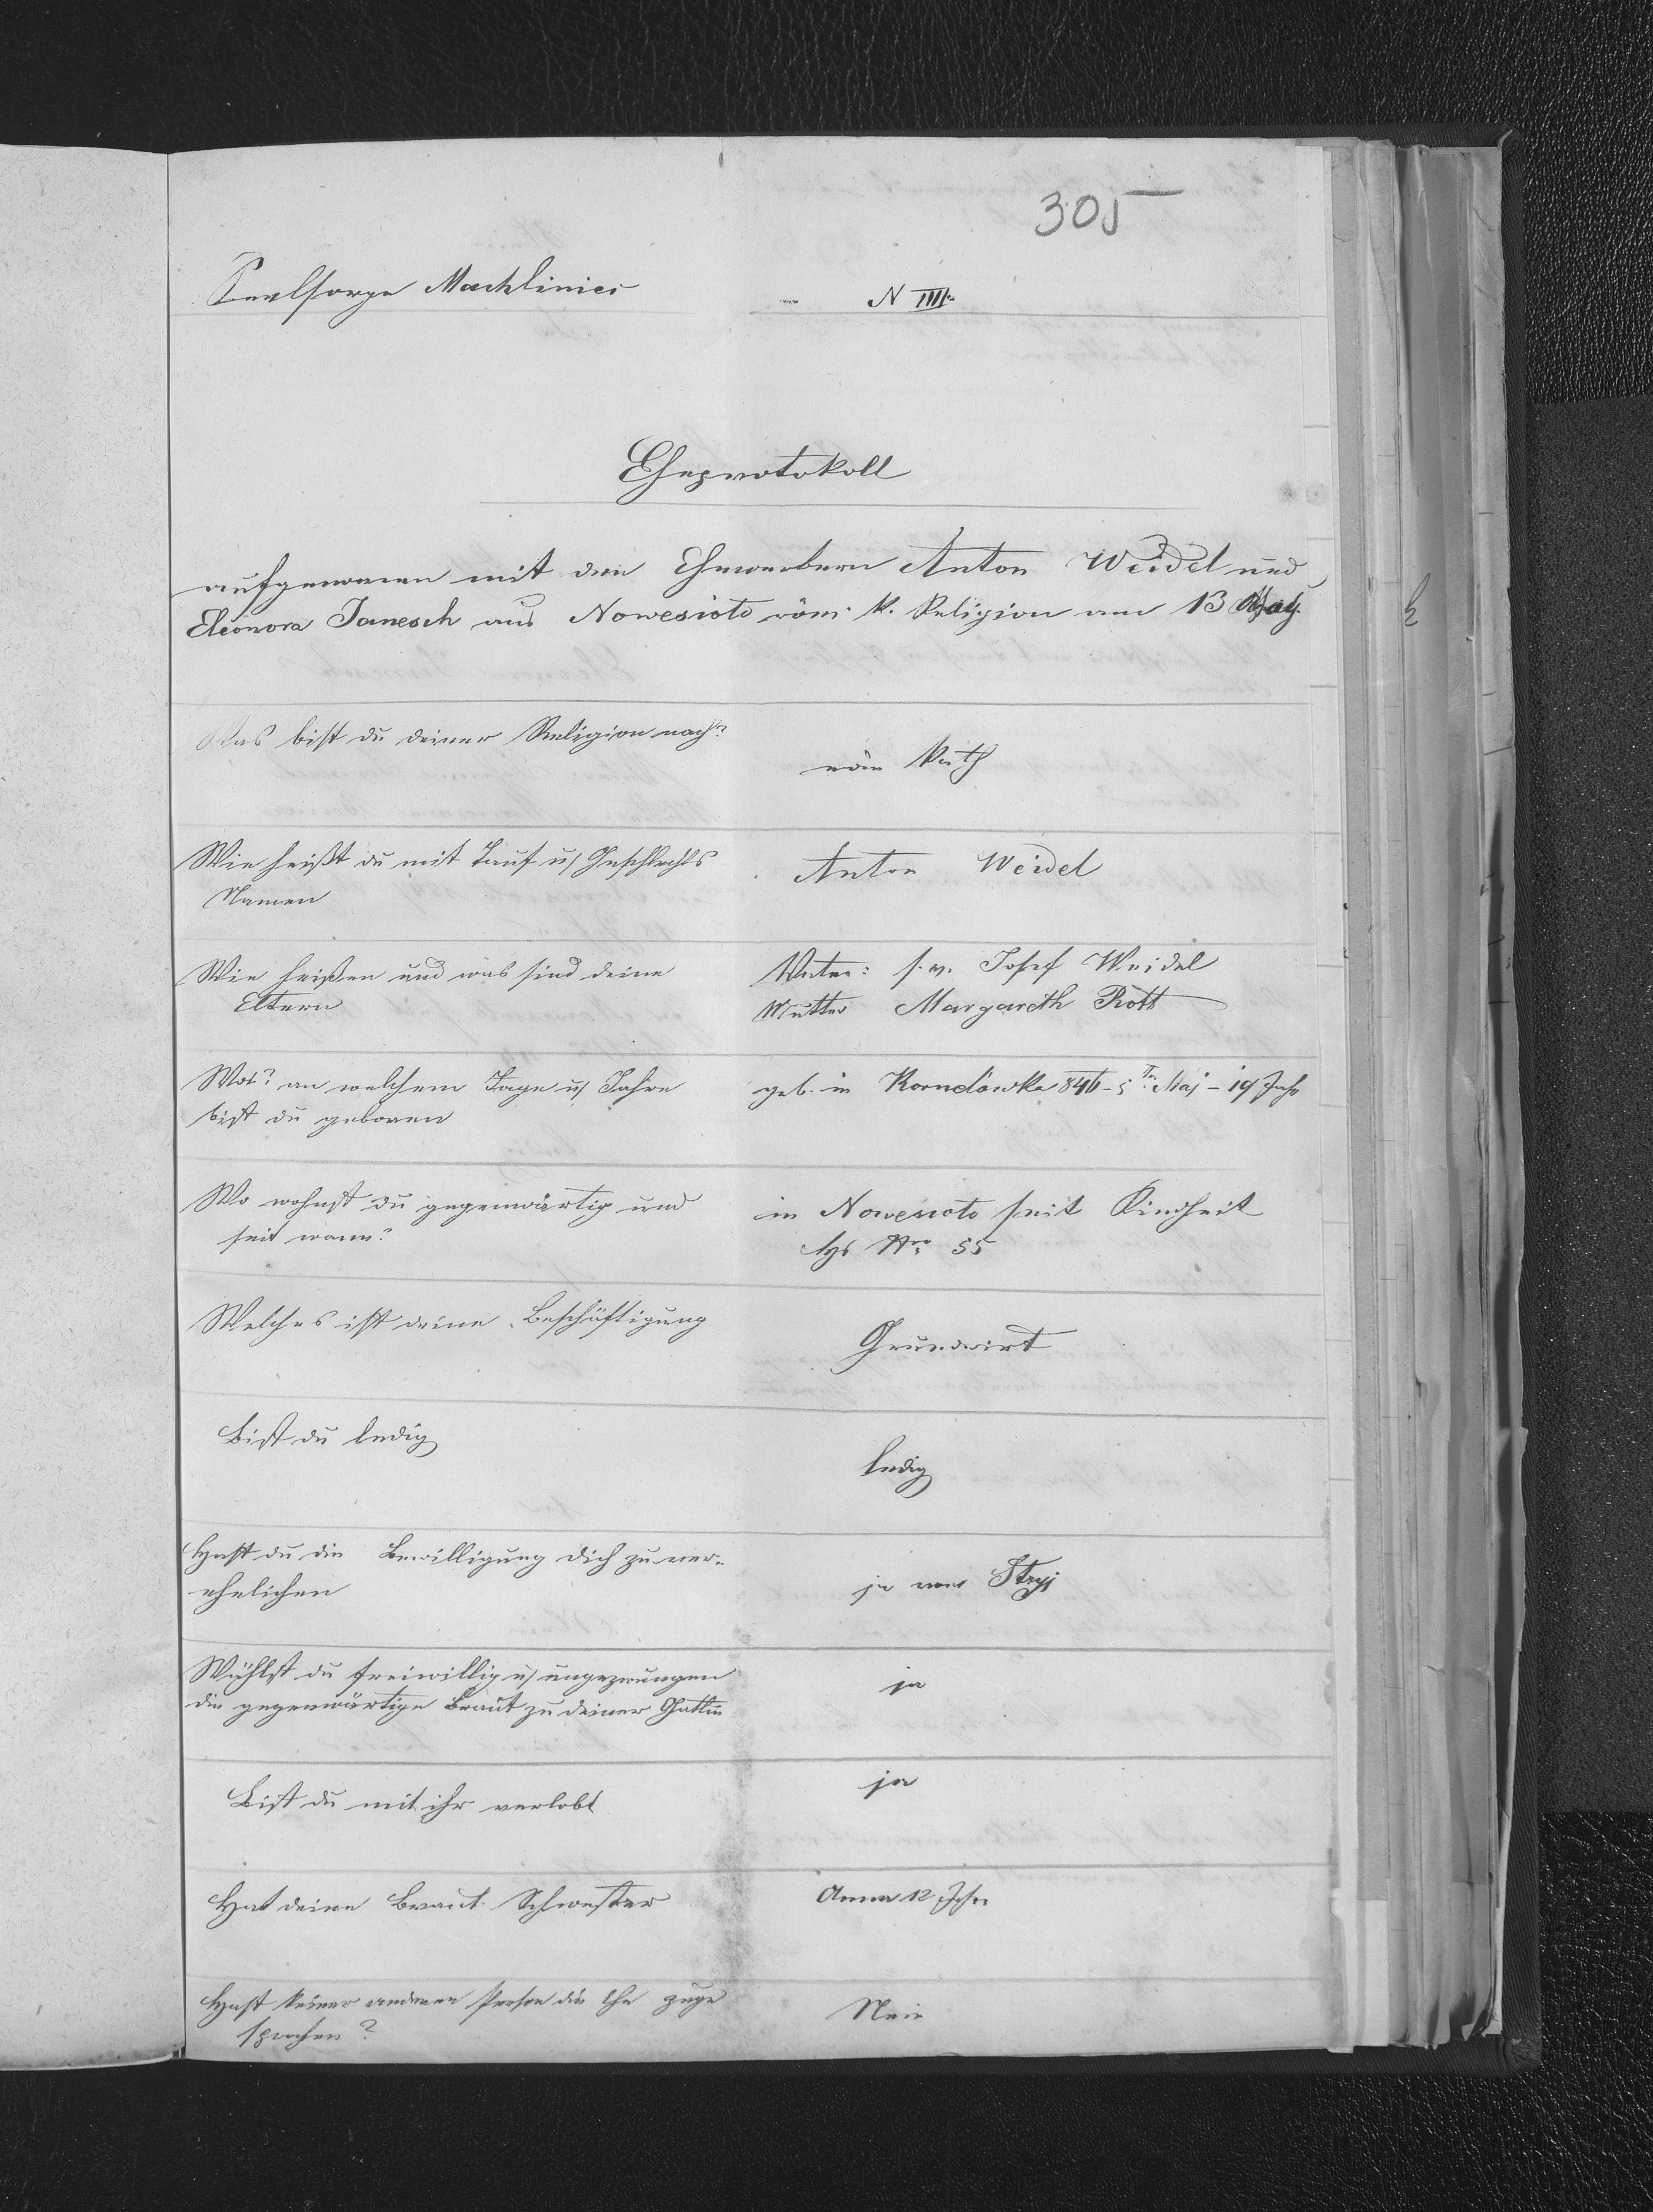 305
Seelsorge Machlinies
N IIII
Eheprotokoll
aufgenomen mit den Ehewerbern Anton Weidel und
Eleonora Janesch aus Nowesioto röm. k. Religion am 13
Was bist du deiner Religion nach?
röm Kath
Wie heißt du mit Tauf u Geschlechts
Namen
Anton Weidel
Wie heißen und was sind deine
Eltern
Vater: Josef Weidel
Mutter Margareth Rott
Wo? an welchem Tage u Jahre
bist du geboren
geb. in Kornelówka Maj - 19 Jahr
Wo wohnst du gegenwärtig und
seit wann?
in Nowesioto seit Kindheit
Hs Nro 55
Welches ist deine Beschäftigung
Grundwirt
Bist du ledig
ledig
Hast du die Bewilligung dich zu ver-
ehelichen
ja von Stryj
Wählst du freiwillig u ungezwungen
die gegenwärtige Braut zu deiner Gattin
ja
Bist du mit ihr verlobt
ja
Hat deine Braut Schwester
Anna 12 Jahr
Hast keiner anderen Person die Ehe zuge
sprochen?
Nein